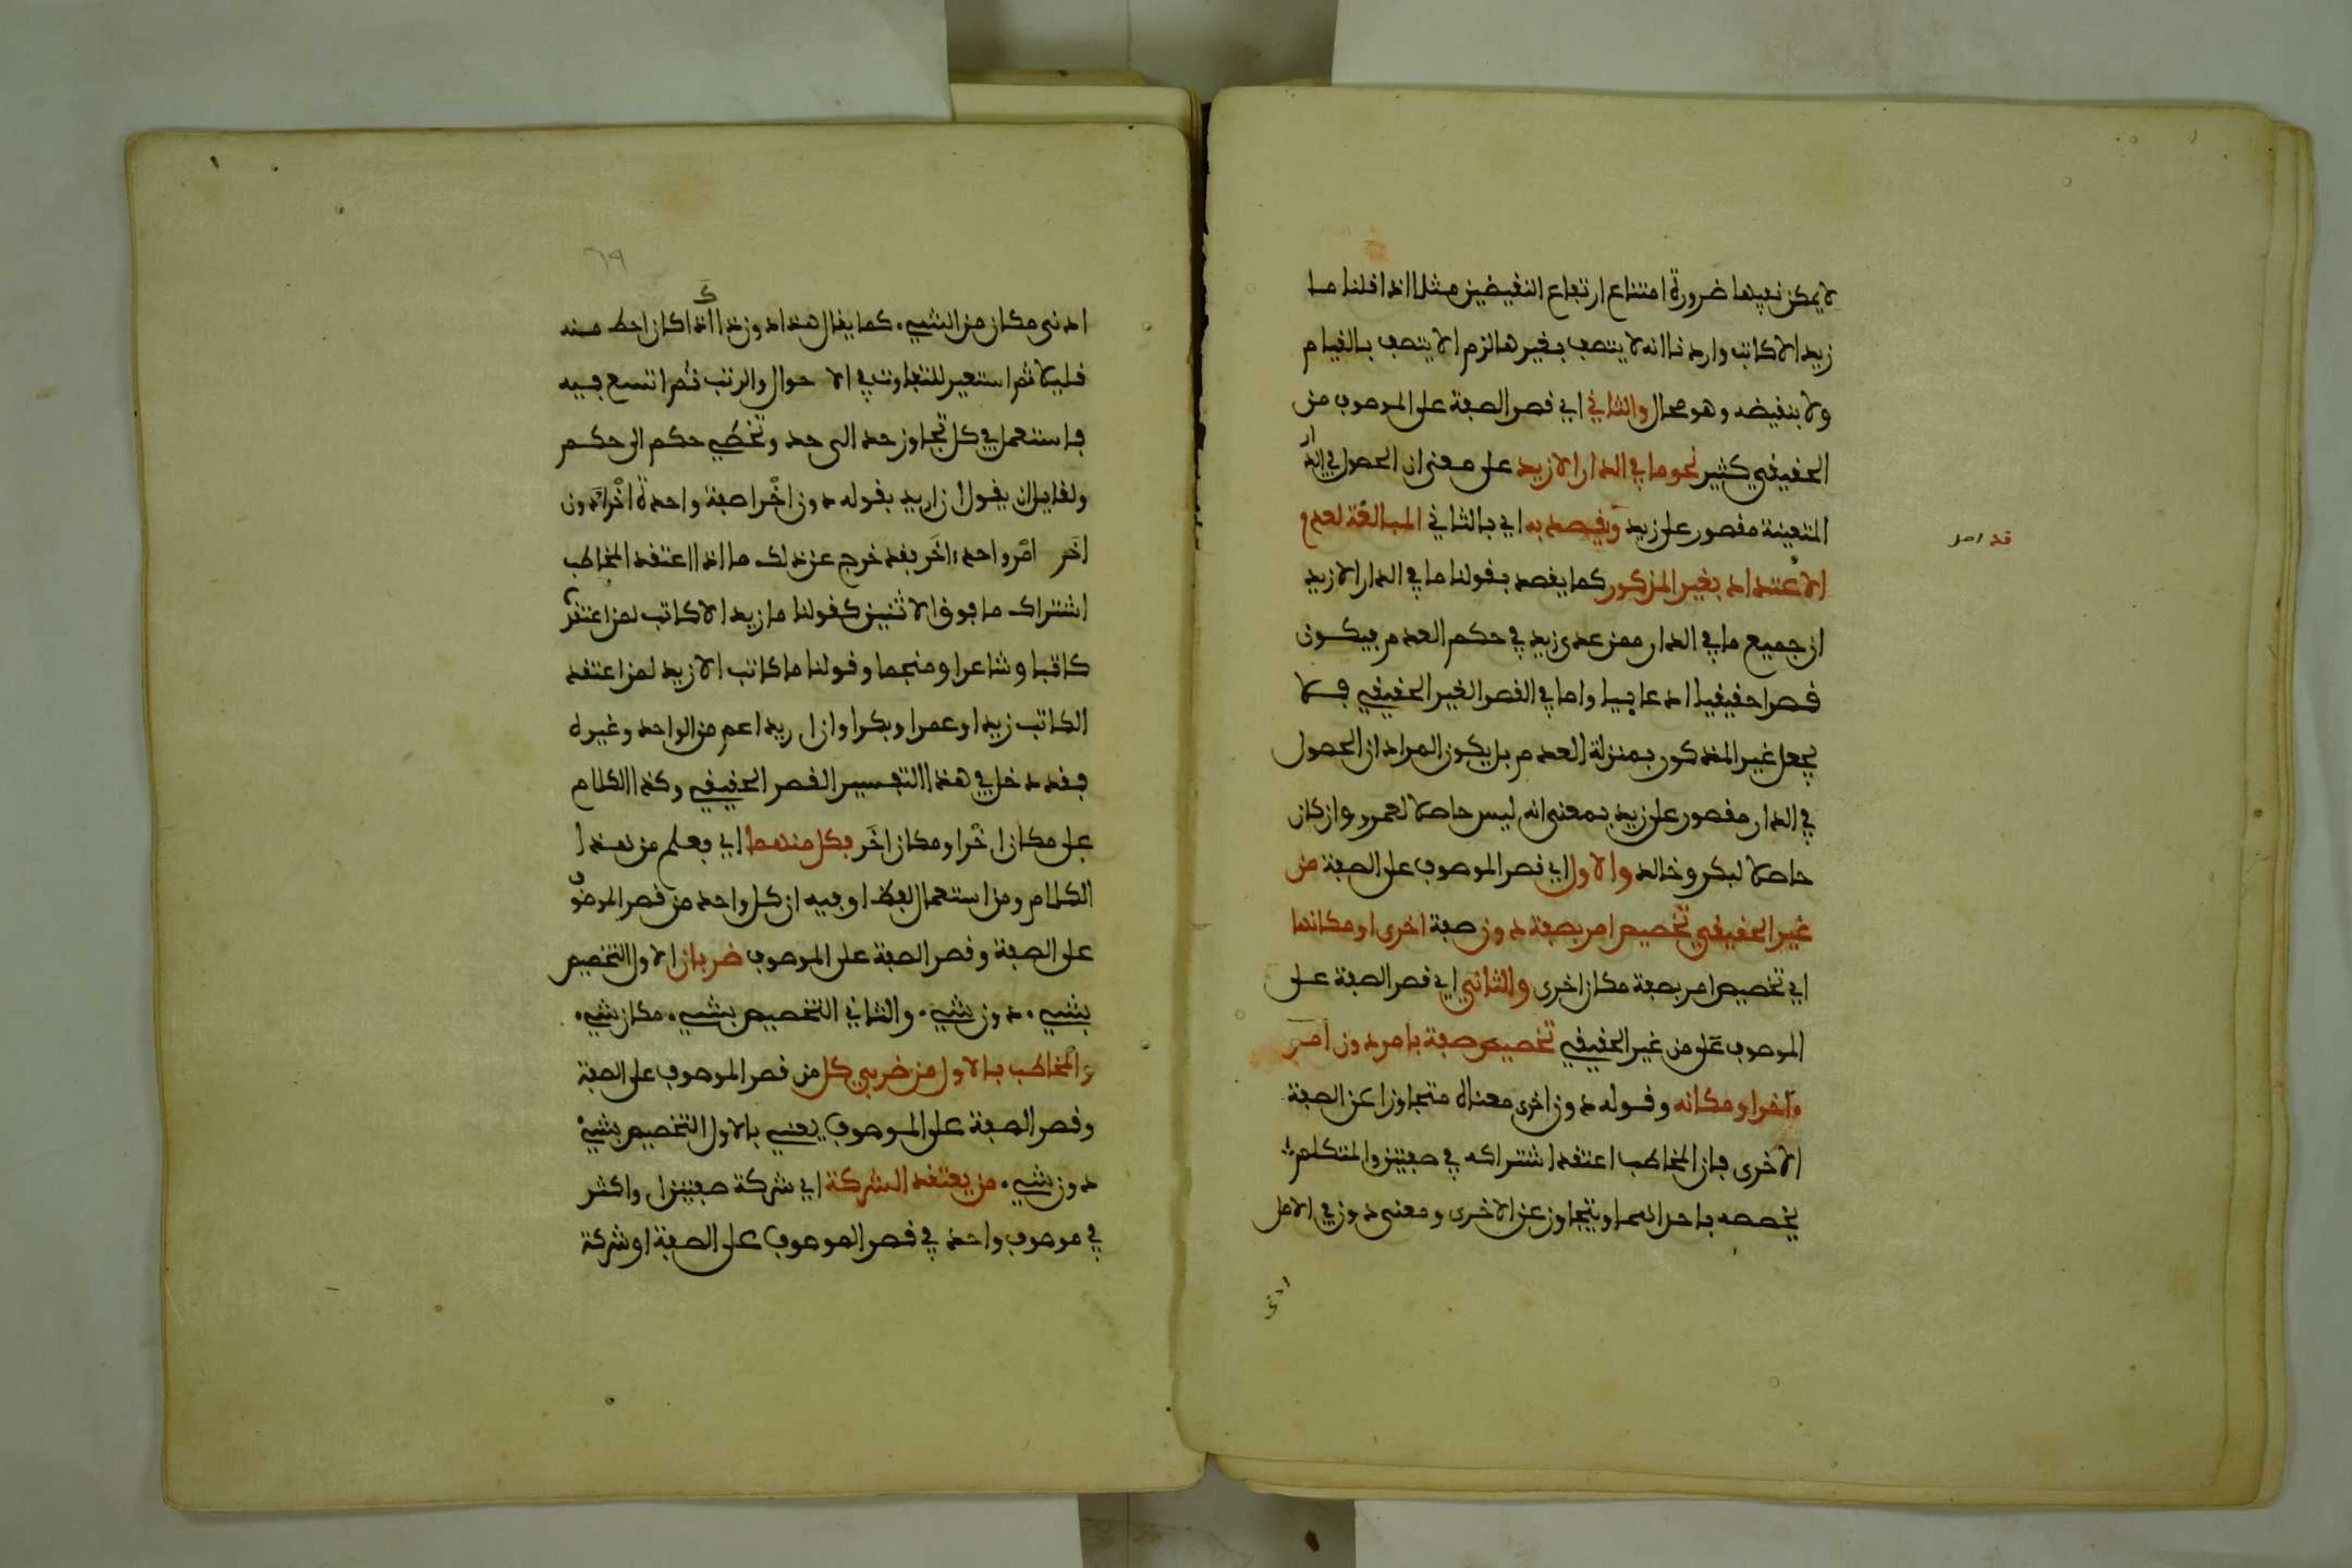 لا يمكن نفيها ضرورة امتناع ارتفاع النقيضين مثلا اذا قلنا ما
زيد الا كاتب واردنا انه لا يتصف بغيرها لزم الا يتصف بالقيام
ولا بنقيضه وهو محال والثاني اي قصر الصفة على الموصوف من
الحقيقي كثير نحو ما في الدار الا زيد على معنى ان الحصول في الدار
المتعينة مقصور على زيد وقد يقصد به اي بالثاني المبالغة لعدم
الاعتداد بغير المذكور كما يقصد بقولنا ما في الدار الا زيد
ان جميع ما في الدار ممن عدى زيد في حكم العدم فيكون
قصرا حقيقيا ادعاييا واما في القصر الغير الحقيقي فلا
يجعل غير المذكور بمنزلة العدم بل يكون المراد ان الحصول
في الدار مقصور على زيد بمعنى انه ليس حاصلا لعمرو وان كان
حاصلا لبكر وخالد والاول اي قصر الموصوف على الصفة من
غير الحقيقي تخصيص امر بصفة دون صفة اخرى او مكانها
اي تخصيص امر بصفة مكان اخرى والثاني اي قصر الصفة على
الموصوف على من غير الحقيقي تخصيص صفة بامر دون امر
واخر او مكانه وقوله دون اخرى معناه متجاوزا عن الصفة
الاخرى فان المخاطب اعتقد اشتراكه في صفتين والمتكلم
يخصصه باحداهما ويتجاوز عن الاخرى ومعنى دون في الاصل
ادنى
ادنى مكان من الشيء كما يقال هذا دون ذاك اذا كان احط منه
قليلا ثم استعير للتفاوت في الاحوال والرتب ثم اتسع فيه
فاستعمل في كل تجاوز حد الى حد وتخطي حكم الى حكم
ولقايل ان يقول ان اريد بقوله دون اخرا صفة واحدة اخرا ودون
اخر امر واحد اخر فقد خرج عن ذلك ما اذا اعتقد المخاطب
اشتراك ما فوق الاثنين كقولنا ما زيد الا كاتب لمن اعتقده
كاتبا وشاعرا ومنجما وقولنا ما كاتب الا زيد لمن اعتقد
الكاتب زيدا وعمرا وبكرا وان اريد اعم من الواحد وغيره
فقد دخل في هذا التفسير القصر الحقيقي وكذا الكلام
على مكان اخرا ومكان اخر فكل منهما اي فعلم من هذا
الكلام ومن استعمال لفظ او فيه ان كل واحد من قصر الموصوف
على الصفة وقصر الصفة على الموصوف ضربان الاول التخصيص
بشيء دون شيء والثاني التخصيص بشيء مكان شيء
والمخاطب بالاول من ضربي كل من قصر الموصوف على الصفة
وقصر الصفة على الموصوف يعني بالاول التخصيص بشيء
دون شيء من يعتقد الشركة اي شركة صفتين او اكثر
في موصوف واحد في قصر الموصوف على الصفة او شركة